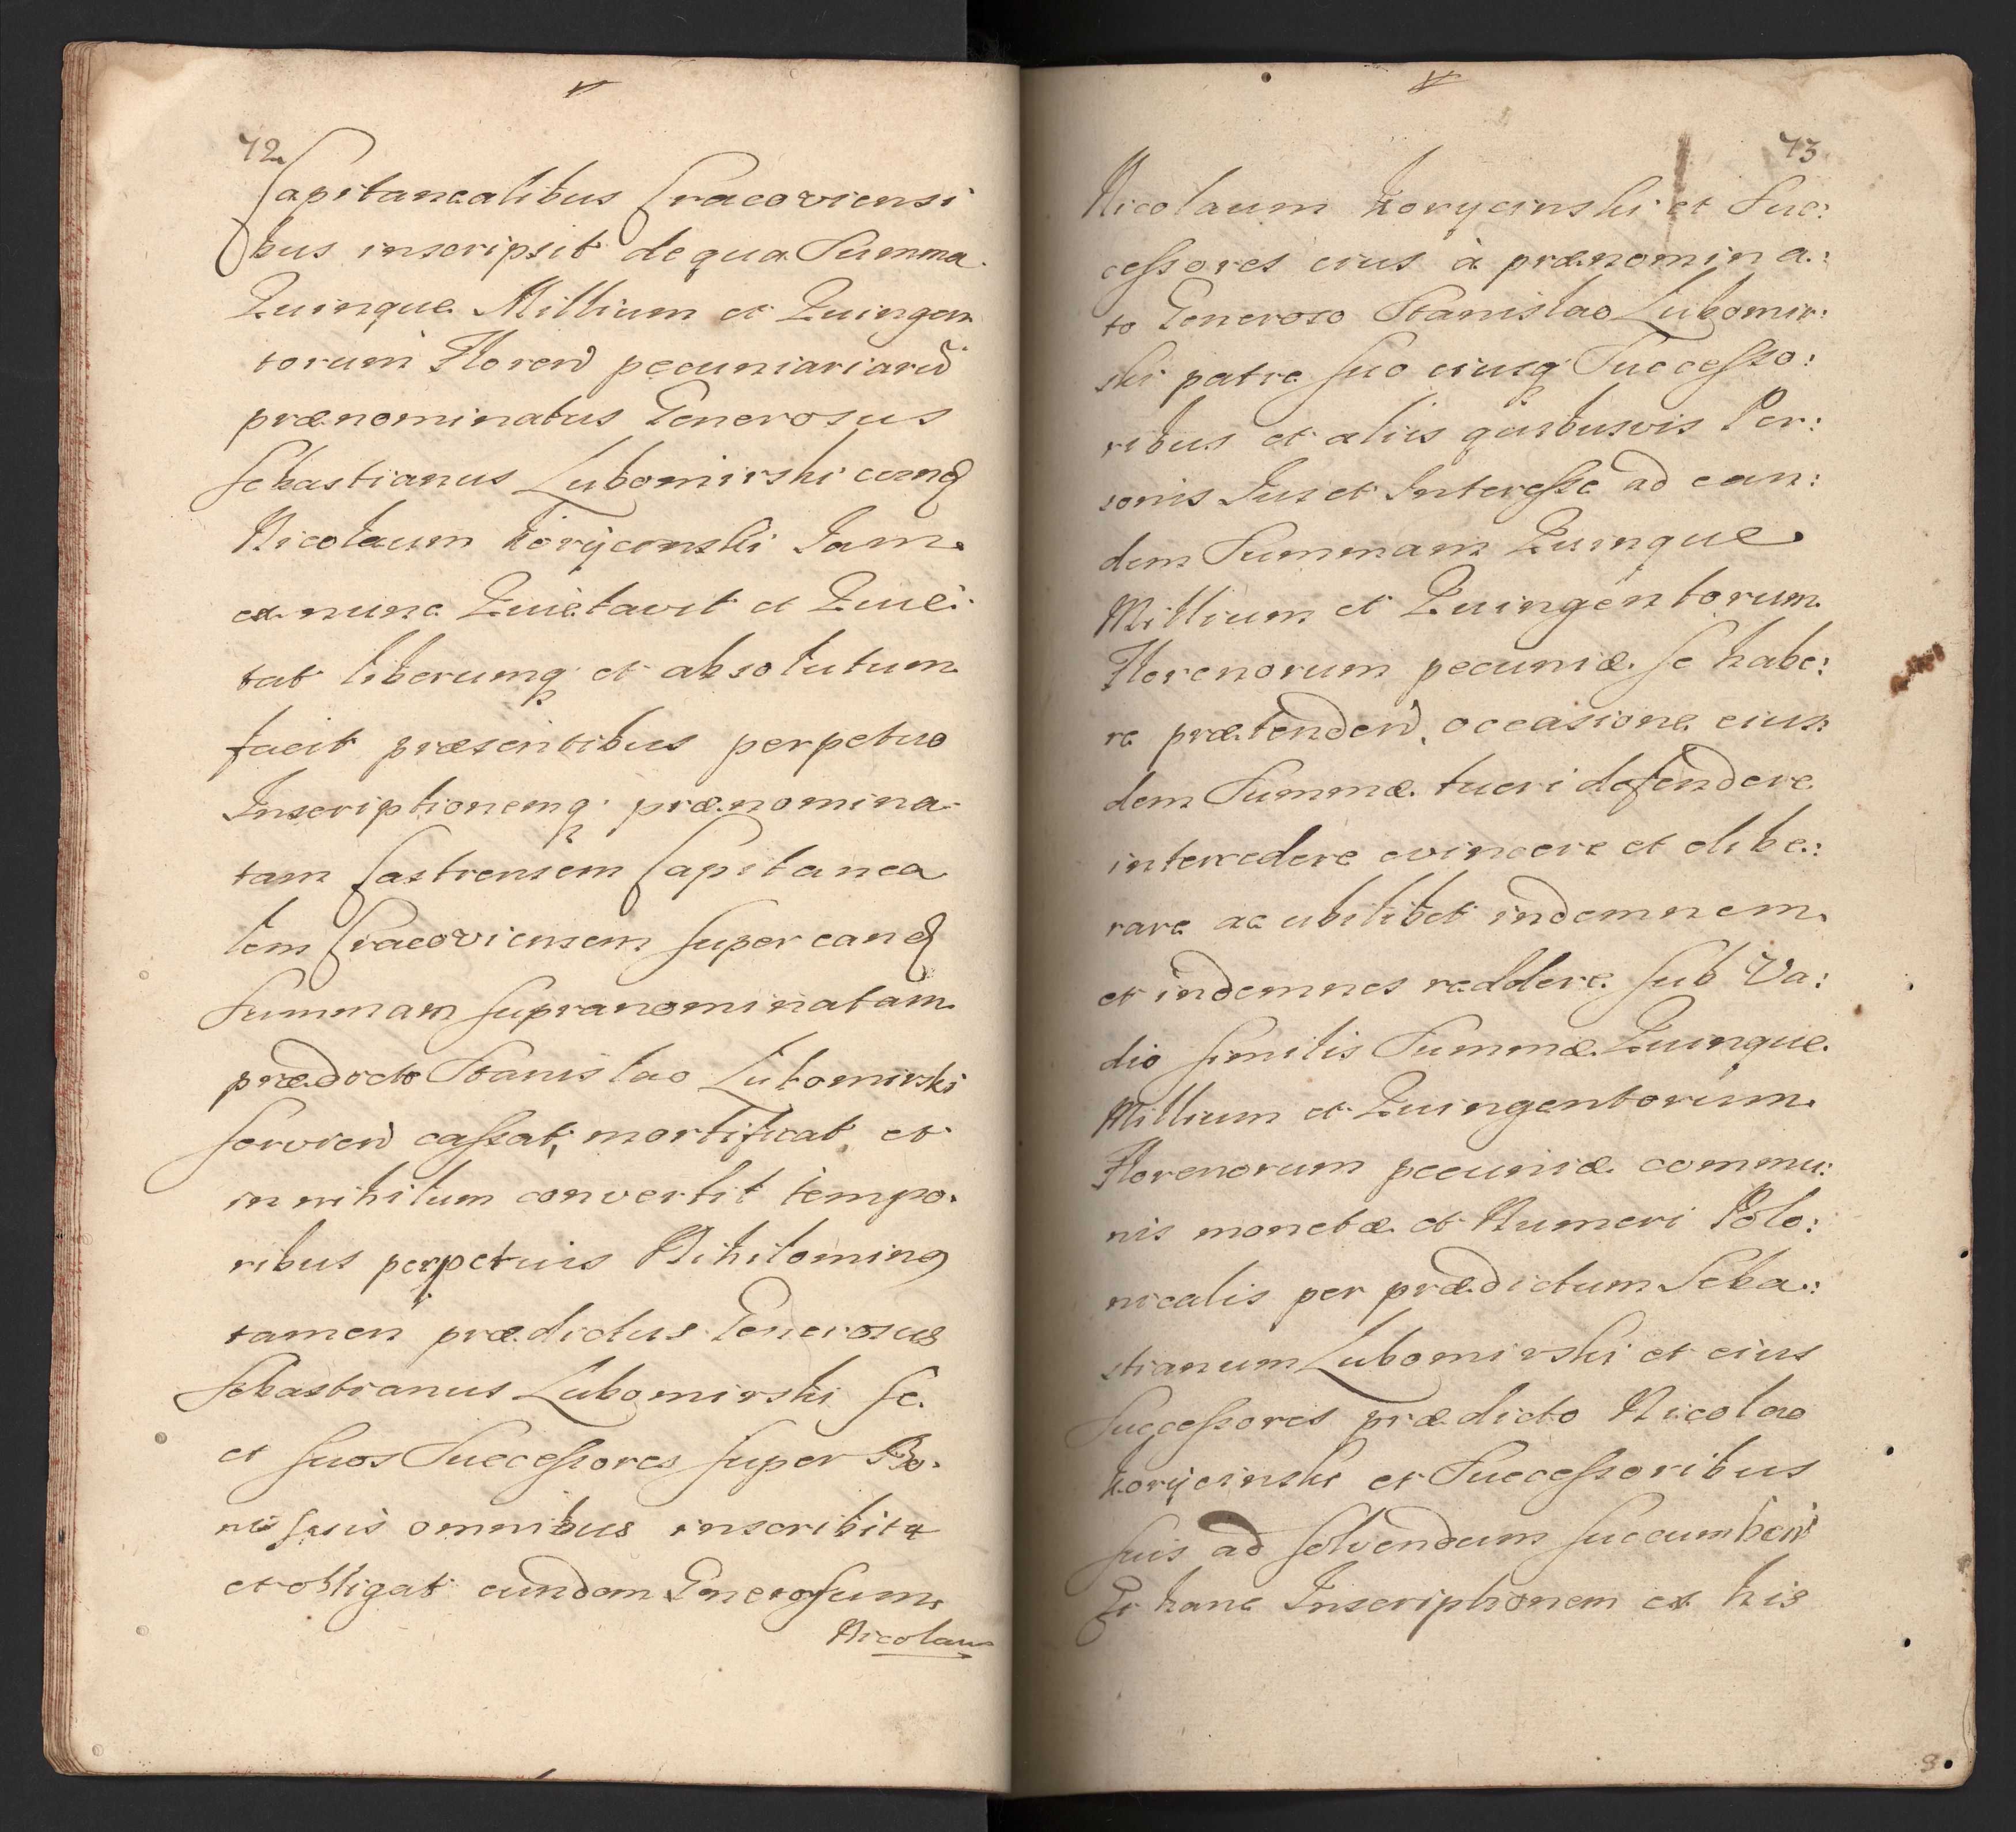 72
Capitanealibus Cracoviensi
bus inscripsit de qua Summa
Quinque Millium et Quingen
torum Floren pecuniariarū
prænominatus Generosus
Sebastianus Lubomirski eund
Nicolaum Koryconski Iam
ex nunc Quietavit et Quie:
tat liberumq et absolutum
facit præsentibus perpetuo
Inscriptionemq prænomina
tam Castrensem Capitanea
lem Cracoviensem super eand
Summam supranominatam
prædicto Stanislao Lubomirski
servien cassat, mortificat, et
in nihilum convertit tempo.
ribus perpetuis Nihilomin9
tamen prædictus Generosus
Sebastianus Lubomirski se
et suos Successores super Bo.
nis suis omnibus inscribit
et obligat eundem Generosum
Nicolaum
73
Nicolaum Korycinski et Suc:
cessores eius à prænomina:
to Generoso Stanislao Lubomir:
ski patre suo eiusq Successo:
ribus et aliis quibusvis Per:
sonis Ius et Interesse ad ean:
dem Summam Quinque
Millium et Quingentorum
Florenorum pecuniæ se habe:
re prætenden, occasione eius:
dem Summæ tueri defendere
intercedere evincere et elibe:
rare ac ubilibet indemnem
et indemnes reddere sub Va:
dio similis Summæ Quinque
Millium et Quingentorum
Florenorum pecuniæ commu:
nis monetæ et Numeri Polo:
nicalis per prædictum Seba:
stianum Lubomirski et eius
Successores prædicto Nicolao
Korycinski et Successoribus
suis ad solvendum succumben
Et hanc Inscriptionem ex his